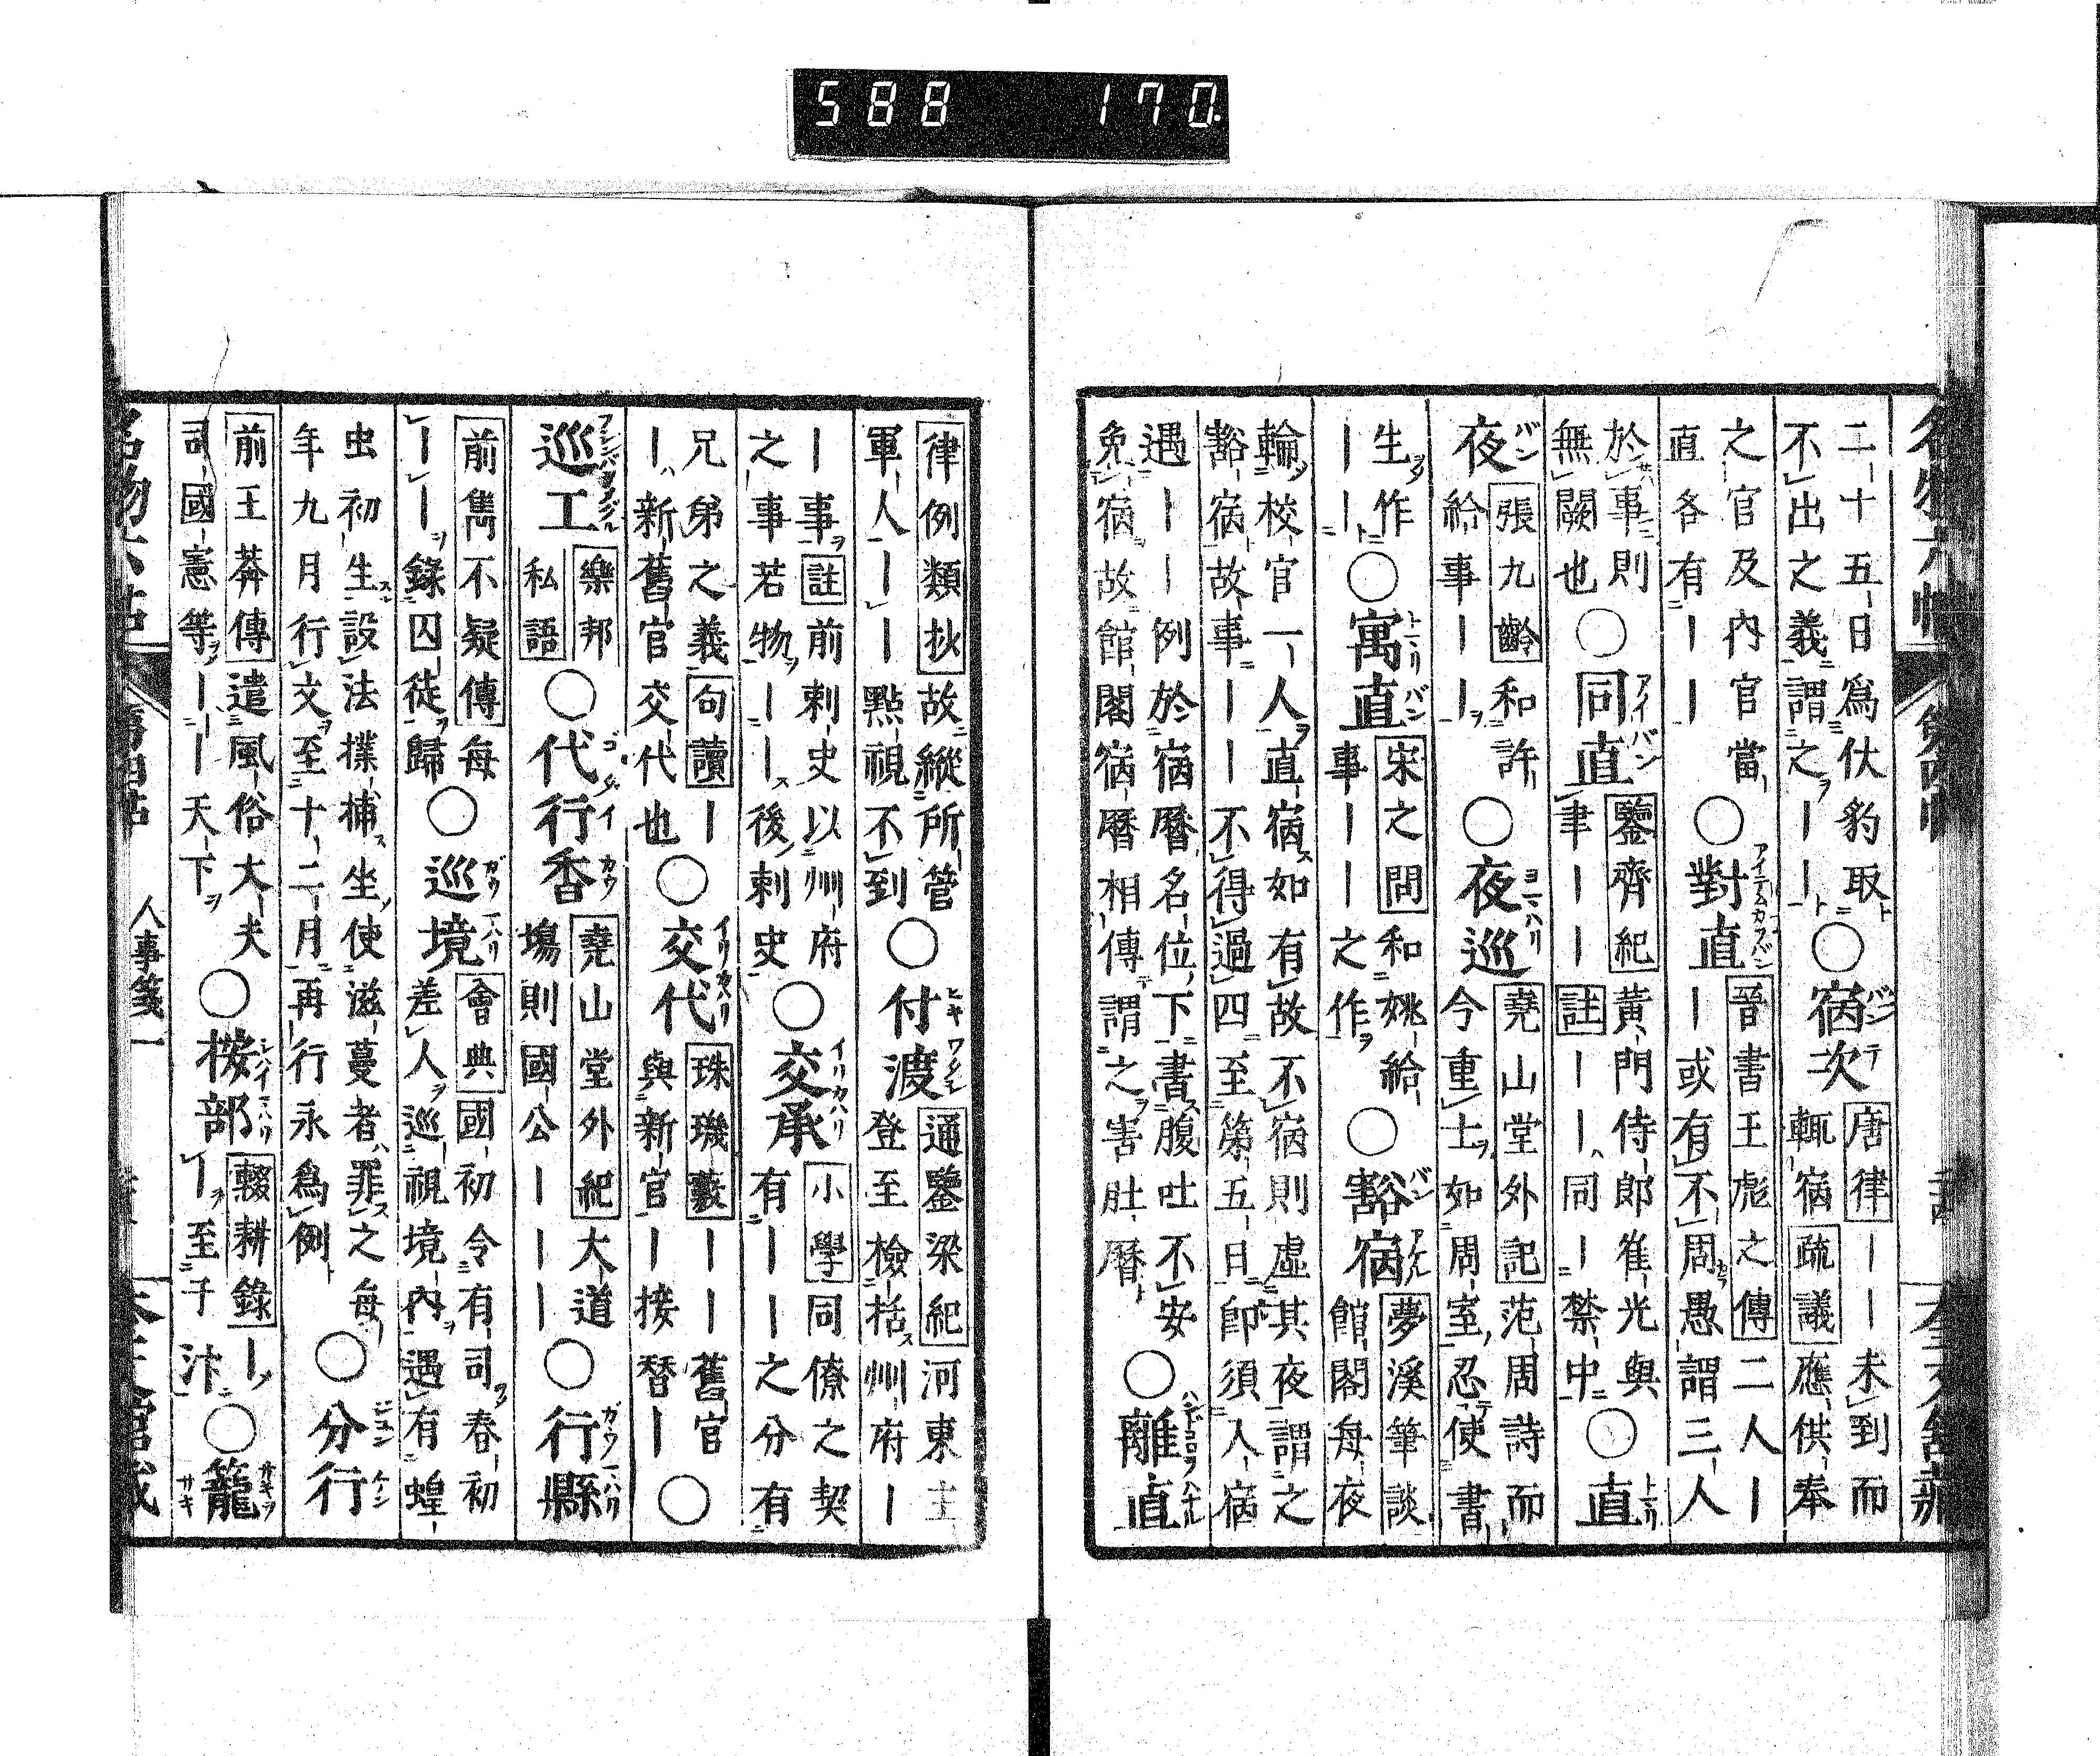 588 170
名物六帖 第四帖
二十五日爲伏豹取
不出之義謂之｜｜○宿次唐律｜｜｜未到而
輒宿疏議應供奉
之官及内官當
直各有｜｜○對直晉書王彪之傳二人｜
｜或有不周愚謂三人
於事則
無闕也○同直鑒齊紀黃門侍郎崔光與
聿｜｜｜註｜｜同｜禁中○直
夜張九齡和許
給事｜｜○夜巡堯山堂外記范周詩而
今重士如周室忍使書
生作
｜｜○寓直宋之問和姚給
事｜｜之作○豁宿夢溪筆談
館閣每夜
輪校官一人直宿如有故不宿則虛其夜謂之
豁宿故事｜｜不得過四至第五日即須入宿
遇｜｜例於宿曆名位下書腹吐不安
免宿故館閣宿曆相傳謂之害肚曆○離直
律例類抄故縱所管
軍人｜｜點視不到○付渡通鑒梁紀河東主
登至檢括州府｜
｜事註前刺史以州府
之事若物｜｜後刺史○交承小學同僚之契
有｜｜之分有
兄弟之義句讀｜
｜新舊官交代也○交代珠璣藪｜｜舊官
與新官｜接替｜○
巡工樂邦
私語○代行香堯山堂外紀大道
塲則國公｜｜｜○行縣
前雋不疑傳每
｜｜錄囚徒歸○巡境會典國初令有司春初
差人巡視境内遇有蝗
虫初生設法撲捕坐使滋蔓者罪之每
年九月行文至十二月再行永爲例○分行
前王莽傳遣風俗大夫
司國憲等｜｜天下○按部輟耕錄｜
｜至于汴○籠
人事箋一